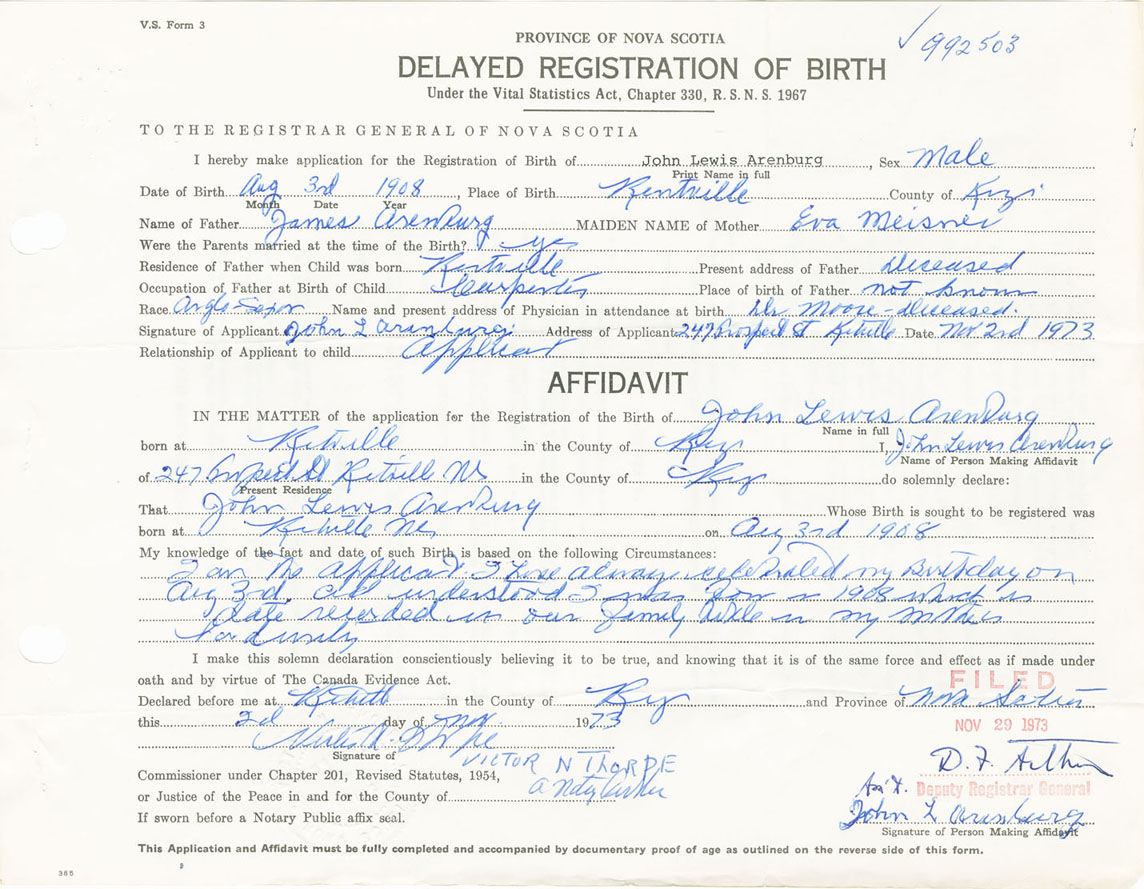 V.S. Form 3
992503
PROVINCE OF NOVA SCOTIA
DELAYED REGISTRATION OF BIRTH
Under the Vital Statistics Act, Chapter 330, R. S. N. S. 1967
TO THE REGISTRAR GENERAL OF NOVA SCOTIA
I hereby make application for the Registration of Birth of John Lewis Arenburg, Sex Male
Print Name in full
Date of Birth Aug 3rd 1908, Place of Birth Kentville County of
Month Date Year
Name of Father James Arenburg MAIDEN NAME of Mother Eva Meisner
Were the Parents married at the time of the Birth? yes
Residence of Father when Child was born Kentville Present address of Father Deceased
Occupation of Father at Birth of Child Carpenter Place of birth of Father not known
Race Anglo-Saxon Name and present address of Physician in attendance at birth Dr Moore - deceased.
Signature of Applicant John L Arenburg Address of Applicant 247 Prospect St Date Nov 2nd 1973
Relationship of Applicant to child Applicant
AFFIDAVIT
IN THE MATTER of the application for the Registration of the Birth of John Lewis Arenburg
Name in full
born at in the County of I, John Lewis Arenburg
Name of Person Making Affidavit
of 247 in the County of do solemnly declare:
Present Residence
That John Lewis Arenburg Whose Birth is sought to be registered was
born at on Aug 3rd 1908
My knowledge of the fact and date of such Birth is based on the following Circumstances:
I am the applicant I have always celebrated my Birthday on
Aug 3rd. understood I was born in 1908 which is
date recorded in our family bible in my mothers
I make this solemn declaration conscientiously believing it to be true, and knowing that it is of the same force and effect as if made under
oath and by virtue of The Canada Evidence Act.
FILED
Declared before me at in the County of and Province of Nova Scotia
this 2d day of Nov 1973
NOV 29 1973
Signature of
VICTOR N THORPE
D. F.
Commissioner under Chapter 201, Revised Statutes, 1954,
or Justice of the Peace in and for the County of
Ass't. Deputy Registrar General
John L Arenburg
If sworn before a Notary Public affix seal.
Signature of Person Making Affidavit
This Application and Affidavit must be fully completed and accompanied by documentary proof of age as outlined on the reverse side of this form.
365